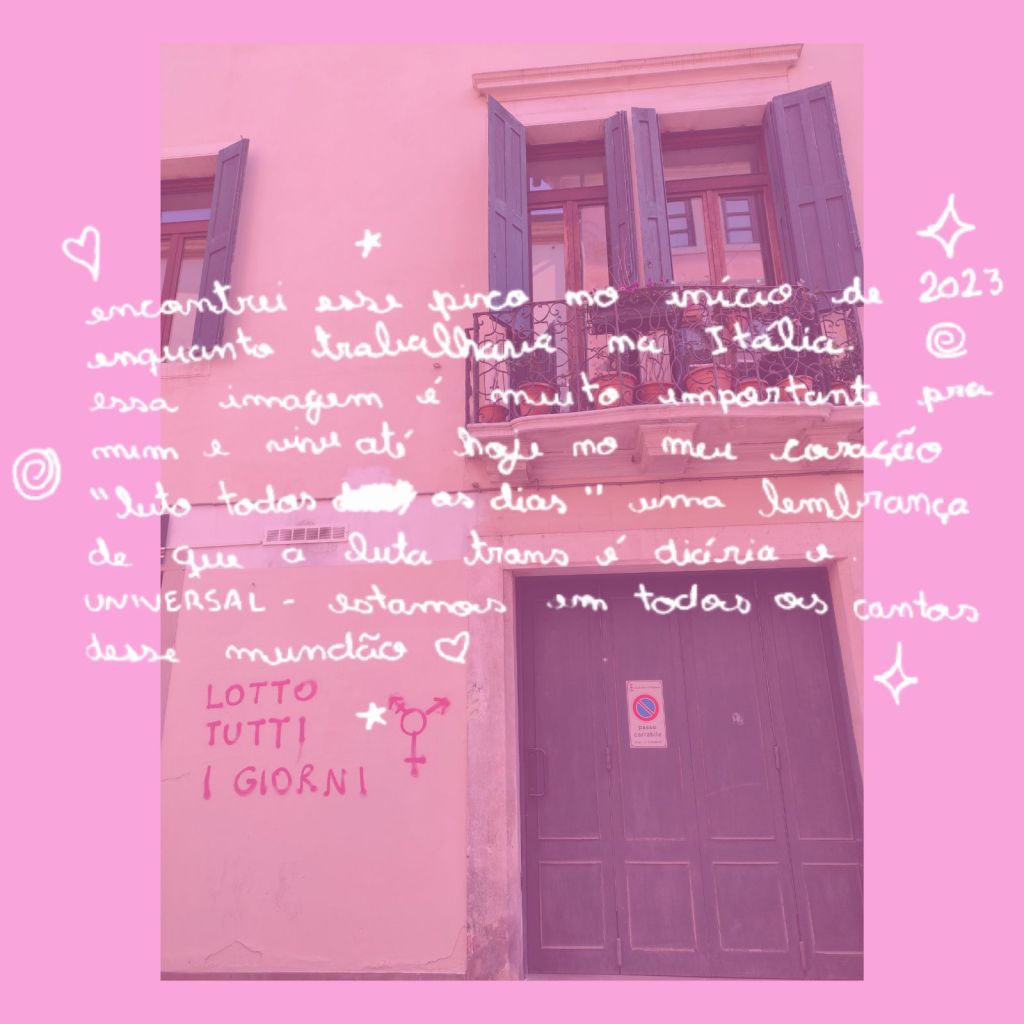 encontrei esse pixo no início de 2023
enquanto trabalhava na Itália.
essa imagem é muito importante pra
mim e vive até hoje no meu coração
"luto todos os dias" uma lembrança
de que a luta trans é diária e
UNIVERSAL - estamos em todos os cantos
desse mundão
LOTTO
TUTTI
I GIORNI
passo
carrabile